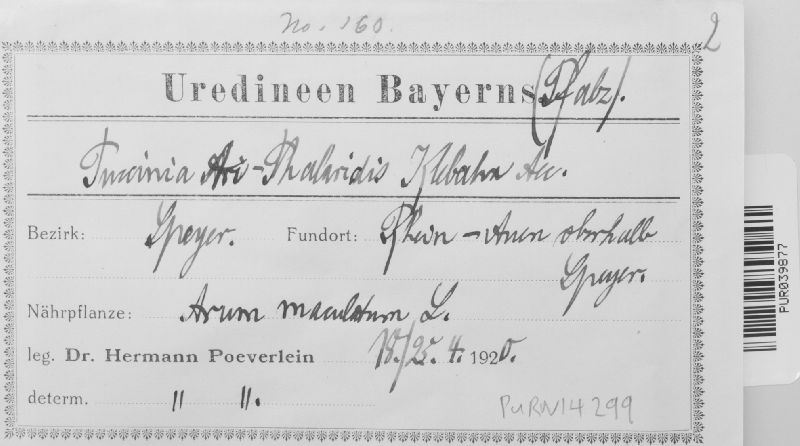 No. 160.
2
Uredineen Bayerns (Pfalz).
Puccinia Ari-Phalaridis Klebahn Aec.
Bezirk: Speyer. Fundort: Rhein-Auen oberhalb
Speyer.
Nährpflanze: Arum maculatum L.
leg. Dr. Hermann Poeverlein 4. 1920.
determ. " ".
PURN14299
PUR039877